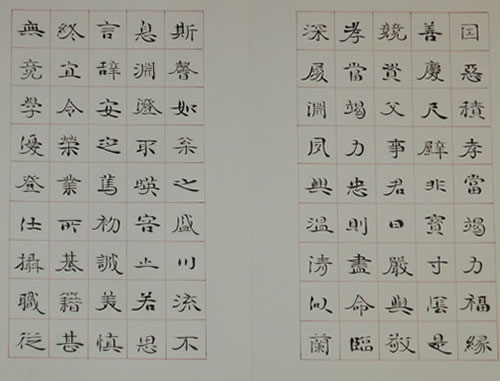 因惡積孝當竭力福緣
善慶尺璧非寶寸陰是
競資父事君曰嚴與敬
孝當竭力忠則盡命臨
深履淵夙興溫凊似蘭
斯馨如枀之盛川流不
息淵澄取暎容止若思
言辭安定篤初誠美慎
終宜令榮業所基籍甚
無竟學優登仕攝職從